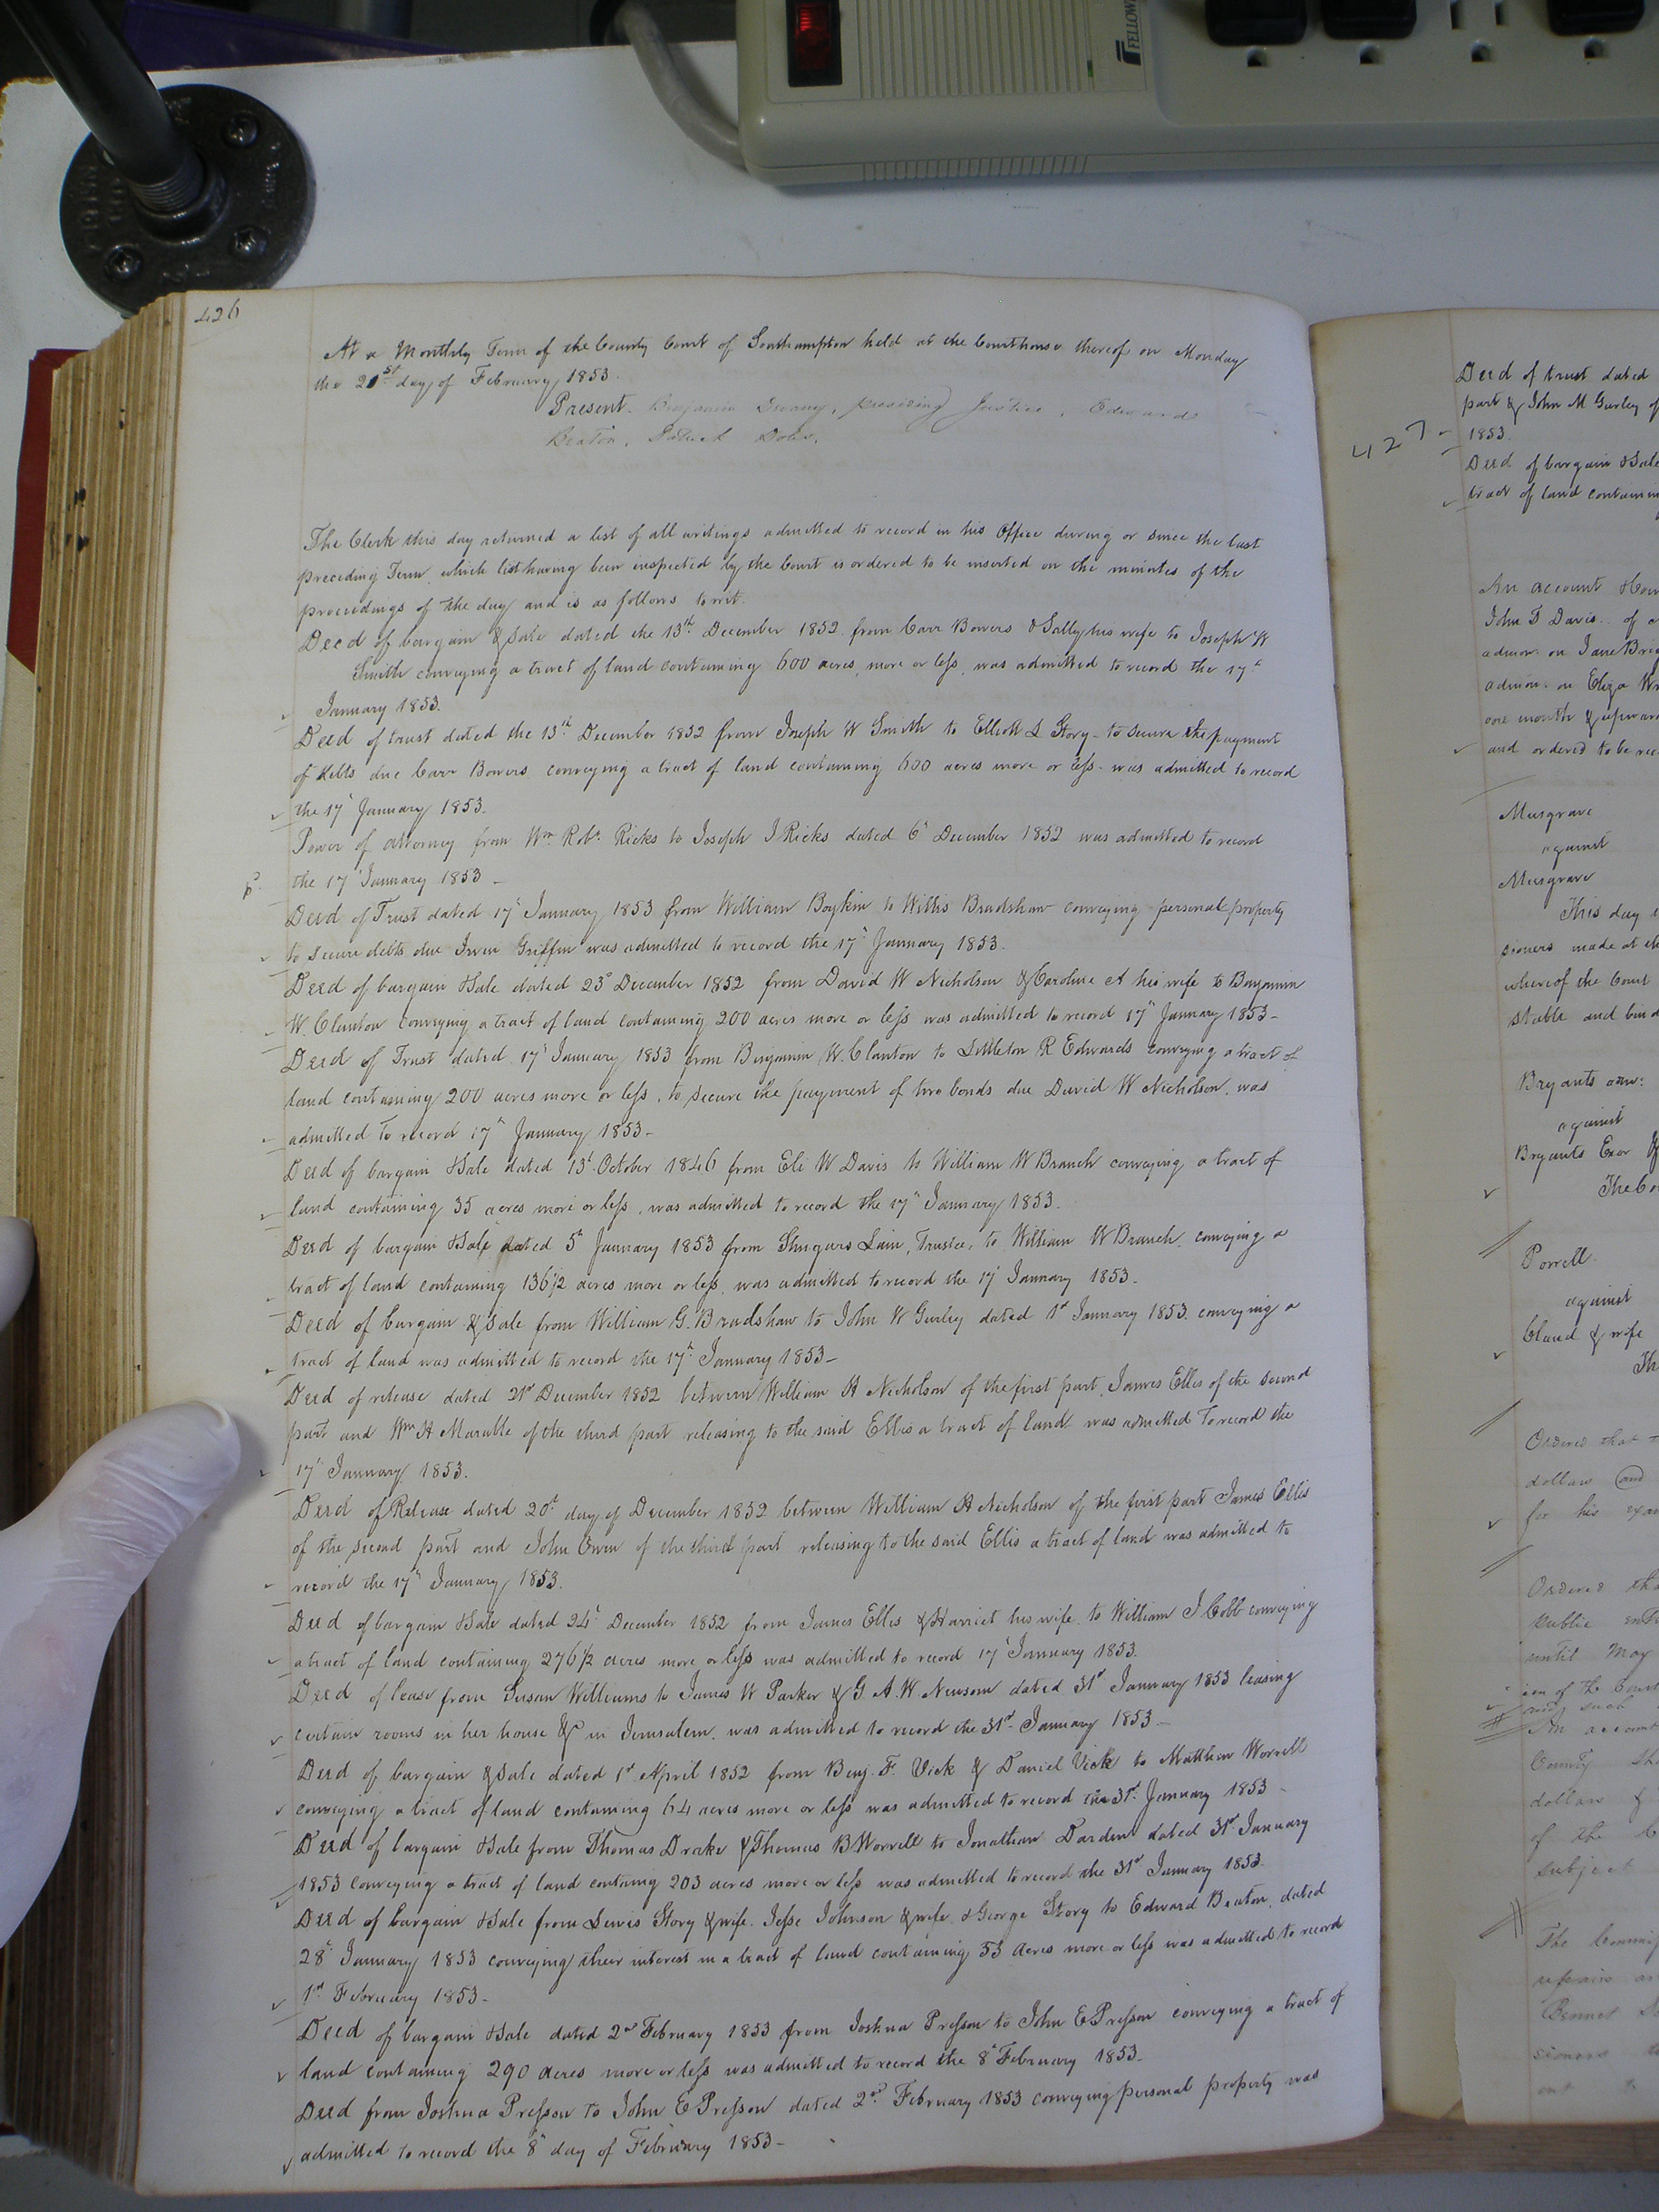 FELLOW
426
At a Monthly Term of the County Court of Southampton held at the Courthouse thereof on Monday
the 21st day of February 1853.
Present. Benjamin presiding Justice, Edward
Beaton, Patrick Doles.
The Clerk this day returned a list of all writings admitted to record in his Office during or since the last
preceding Term, which list having been inspected by the Court is ordered to be inserted on the minutes of the
proceedings of the day and is as follows towit.
Deed of bargain & sale dated the 13th December 1852 from Carr Bowers & Sally his wife to Joseph W
Smith conveying a tract of land containing 600 acres, more or less, was admitted to record the 17th
January 1853.
Deed of trust dated the 13th December 1852 from Joseph W Smith to Elliott L Story to secure the payment
of debts due Carr Bowers conveying a tract of land containing 600 acres more or less was admitted to record
the 17th January 1853.
Power of attorney from Wm. Robt. Ricks to Joseph J Ricks dated 6th December 1852 was admitted to record
the 17th January 1853 -
Deed of Trust dated 17th January 1853 from William Boykin to Willis Bradshaw conveying personal property
to secure debts due Irwin Griffin was admitted to record the 17th January 1853.
Deed of bargain & Sale dated 23d December 1852 from David W Nicholson & Caroline A his wife to Benjamin
W. Clanton conveying a tract of land containing 200 acres more or less was admitted to record 17th January 1853-
Deed of Trust dated 17th January 1853 from Benjamin W. Clanton to Littleton R Edwards conveying a tract of
land containing 200 acres more or less, to secure the payment of two bonds due David W Nicholson, was
admitted to record 17th January 1853-
Deed of bargain & Sale dated 13th October 1846 from Eli W Davis to William W Branch conveying a tract of
land containing 35 acres more or less, was admitted to record the 17th January 1853.
Deed of bargain & Sale dated 5th January 1853 from Shugars Lain, Trustee, to William W Branch, conveying a
tract of land containing 136 1/2 acres more or less, was admitted to record the 17th January 1853.
Deed of bargain & Sale from William G. Bradshaw to John W Gurley dated 1st January 1853. conveying a
tract of land was admitted to record the 17th January 1853-
Deed of release dated 21st December 1852 between William H Nicholson of the first part, James Ellis of the second
part and Wm H Marable of the third part releasing to the said Ellis a tract of land was admitted to record the
17th January 1853.
Deed of Release dated 20th day of December 1852 between William H Nicholson of the first part James Ellis
of the second part and John Owen of the third part releasing to the said Ellis a tract of land was admitted to
record the 17th January 1853.
Deed of bargain & Sale dated 24th December 1852 from James Ellis & Harriet his wife to William J Cobb conveying
a tract of land containing 276 1/2 acres more or less was admitted to record 17th January 1853.
Deed of lease from Susan Williams to James W Parker & G. A. W. Newsom dated 31st January 1853 leasing
certain rooms in her house & in Jerusalem. was admitted to record the 31st January 1853-
Deed of bargain & Sale dated 1st April 1852 from Benj. F. Vick & Daniel Vick to Matthew Worrell
conveying a tract of land containing 64 acres more or less was admitted to record the 31st January 1853
Deed of bargain & Sale from Thomas Drake & Thomas B. Worrell to Jonathan Darden dated 31st January
1853 conveying a tract of land containg 203 acres more or less was admitted to record the 31st January 1853.
Deed of bargain & Sale from Lewis Story & wife. Jesse Johnson & wife & George Story to Edward Beaton, dated
28th January 1853 conveying their interest in a tract of land containing 53 Acres more or less was admitted to record
1st February 1853-
Deed of bargain & Sale dated 2nd February 1853 from Joshua Presson to John E Presson conveying a tract of
land containing 290 acres more or less was admitted to record the 8th February 1853.
Deed from Joshua Presson to John E Presson dated 2nd February 1853 conveying personal property was
admitted to record the 8th day of February 1853-
427
Deed of trust dated
part & John M Gurley of
1853.
Deed of bargain & Sale
tract of land containin
An account
John T Davis of a
admor. on Jane
admor. on Eliza
one month & upwar
and ordered to be rec
Musgrave
against
Musgrave
This day
sioners made at th
whereof the Court
stable and bind
Bryants
against
Bryants Exor &
The Co
Porrell
against
Claud & wife
Th
Ordered that
dollars and
for his
Ordered tha
public
until May
ion of the Court
such
An account
County
dollars &
of the
subject
The Commi
repairs
Bennet
sioners